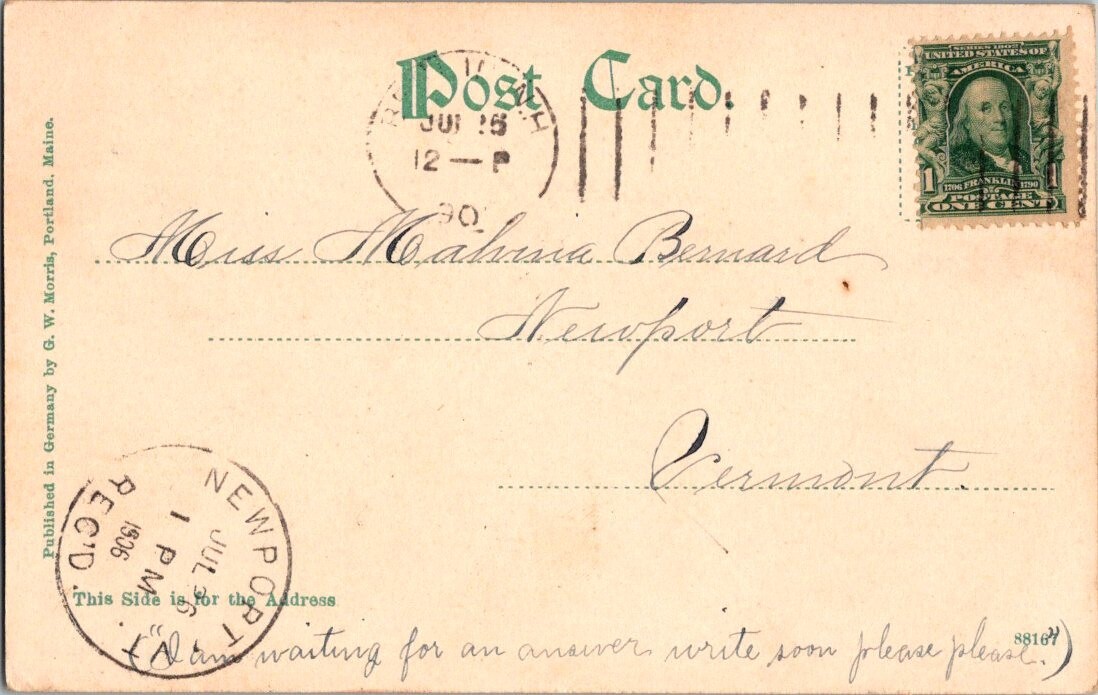 Post Card.
JUL 25
12 — P
SERIES 1902
UNITED STATES OF
AMERICA
1 1
1706 FRANKLIN 1790
POSTAGE
ONE CENT
Miss Malvina Bernard
Newport
Vermont.
Published in Germany by G. W. Morris, Portland, Maine.
NEWPORT, VT.
JUL 26
1 PM
1906
REC'D.
This Side is for the Address
88167
("I am waiting for an answer write soon please please.")